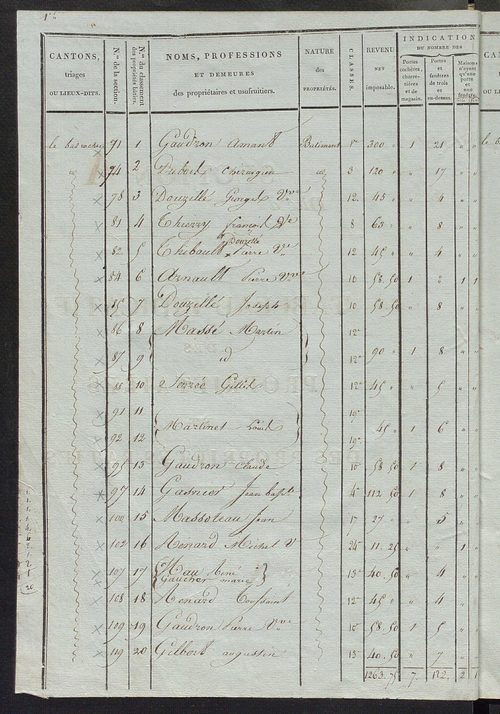 CANTONS, triages OU LIEUX-DITS. N.os de la section. N.os du classement des propriétés bâties. NOMS, PROFESSIONS ET DEMEURES des propriétaires et usufruitiers. NATURE des PROPRIÉTÉS. CLASSES. REVENU NET imposable. INDICATION DU NOMBRE DES Portes cochères, charretières et de magasin. Portes et fenêtres de trois et en-dessus. Maisons n'ayant qu'une porte et une fenêtre.
71 1 Gaudron Amant Batiment 300 " 1 21 " "
74 2 Dubois Chirurgien 3 120 " " 17 " "
78 3 Douzillé Georges V.ve 12 45 " " 4 " "
81 4 Thierry françois 8 " 8 " "
Douzillé
82 5 Thibault Pierre V.ve 12 45 " " 4 " "
84 6 Arnault Pierre V.ve 10 58.50 1 2 1 1
85 7 Douzillé Joseph 10 58.50 " 8 " "
86 8 Massé Martin 12
87 9 id 12 90 " 1 8 " "
88 10 Gilles 12 45 " " 5 " "
91 11 19
Martinet Louis 45 " 1 6 " "
92 12 19
95 13 Gaudron Claude 10 58.50 1 8 " "
97 14 Jean bapt. 4 112.50 1 8 " "
100 15 Massoteau Jean 17 27 " " 5 " "
102 16 Renard Michel V 24 11.25 " " 1 "
107 17 René
Gaucher marie 13 40.50 " 4 " "
108 18 Renard Toussaint 12 45 " " 4 " "
109 19 Gaudron Pierre V.ve 10 58.50 1 5 " "
119 20 Gilbert augustin 13 40.50 " 7 " "
1263.75 7 132 2 1